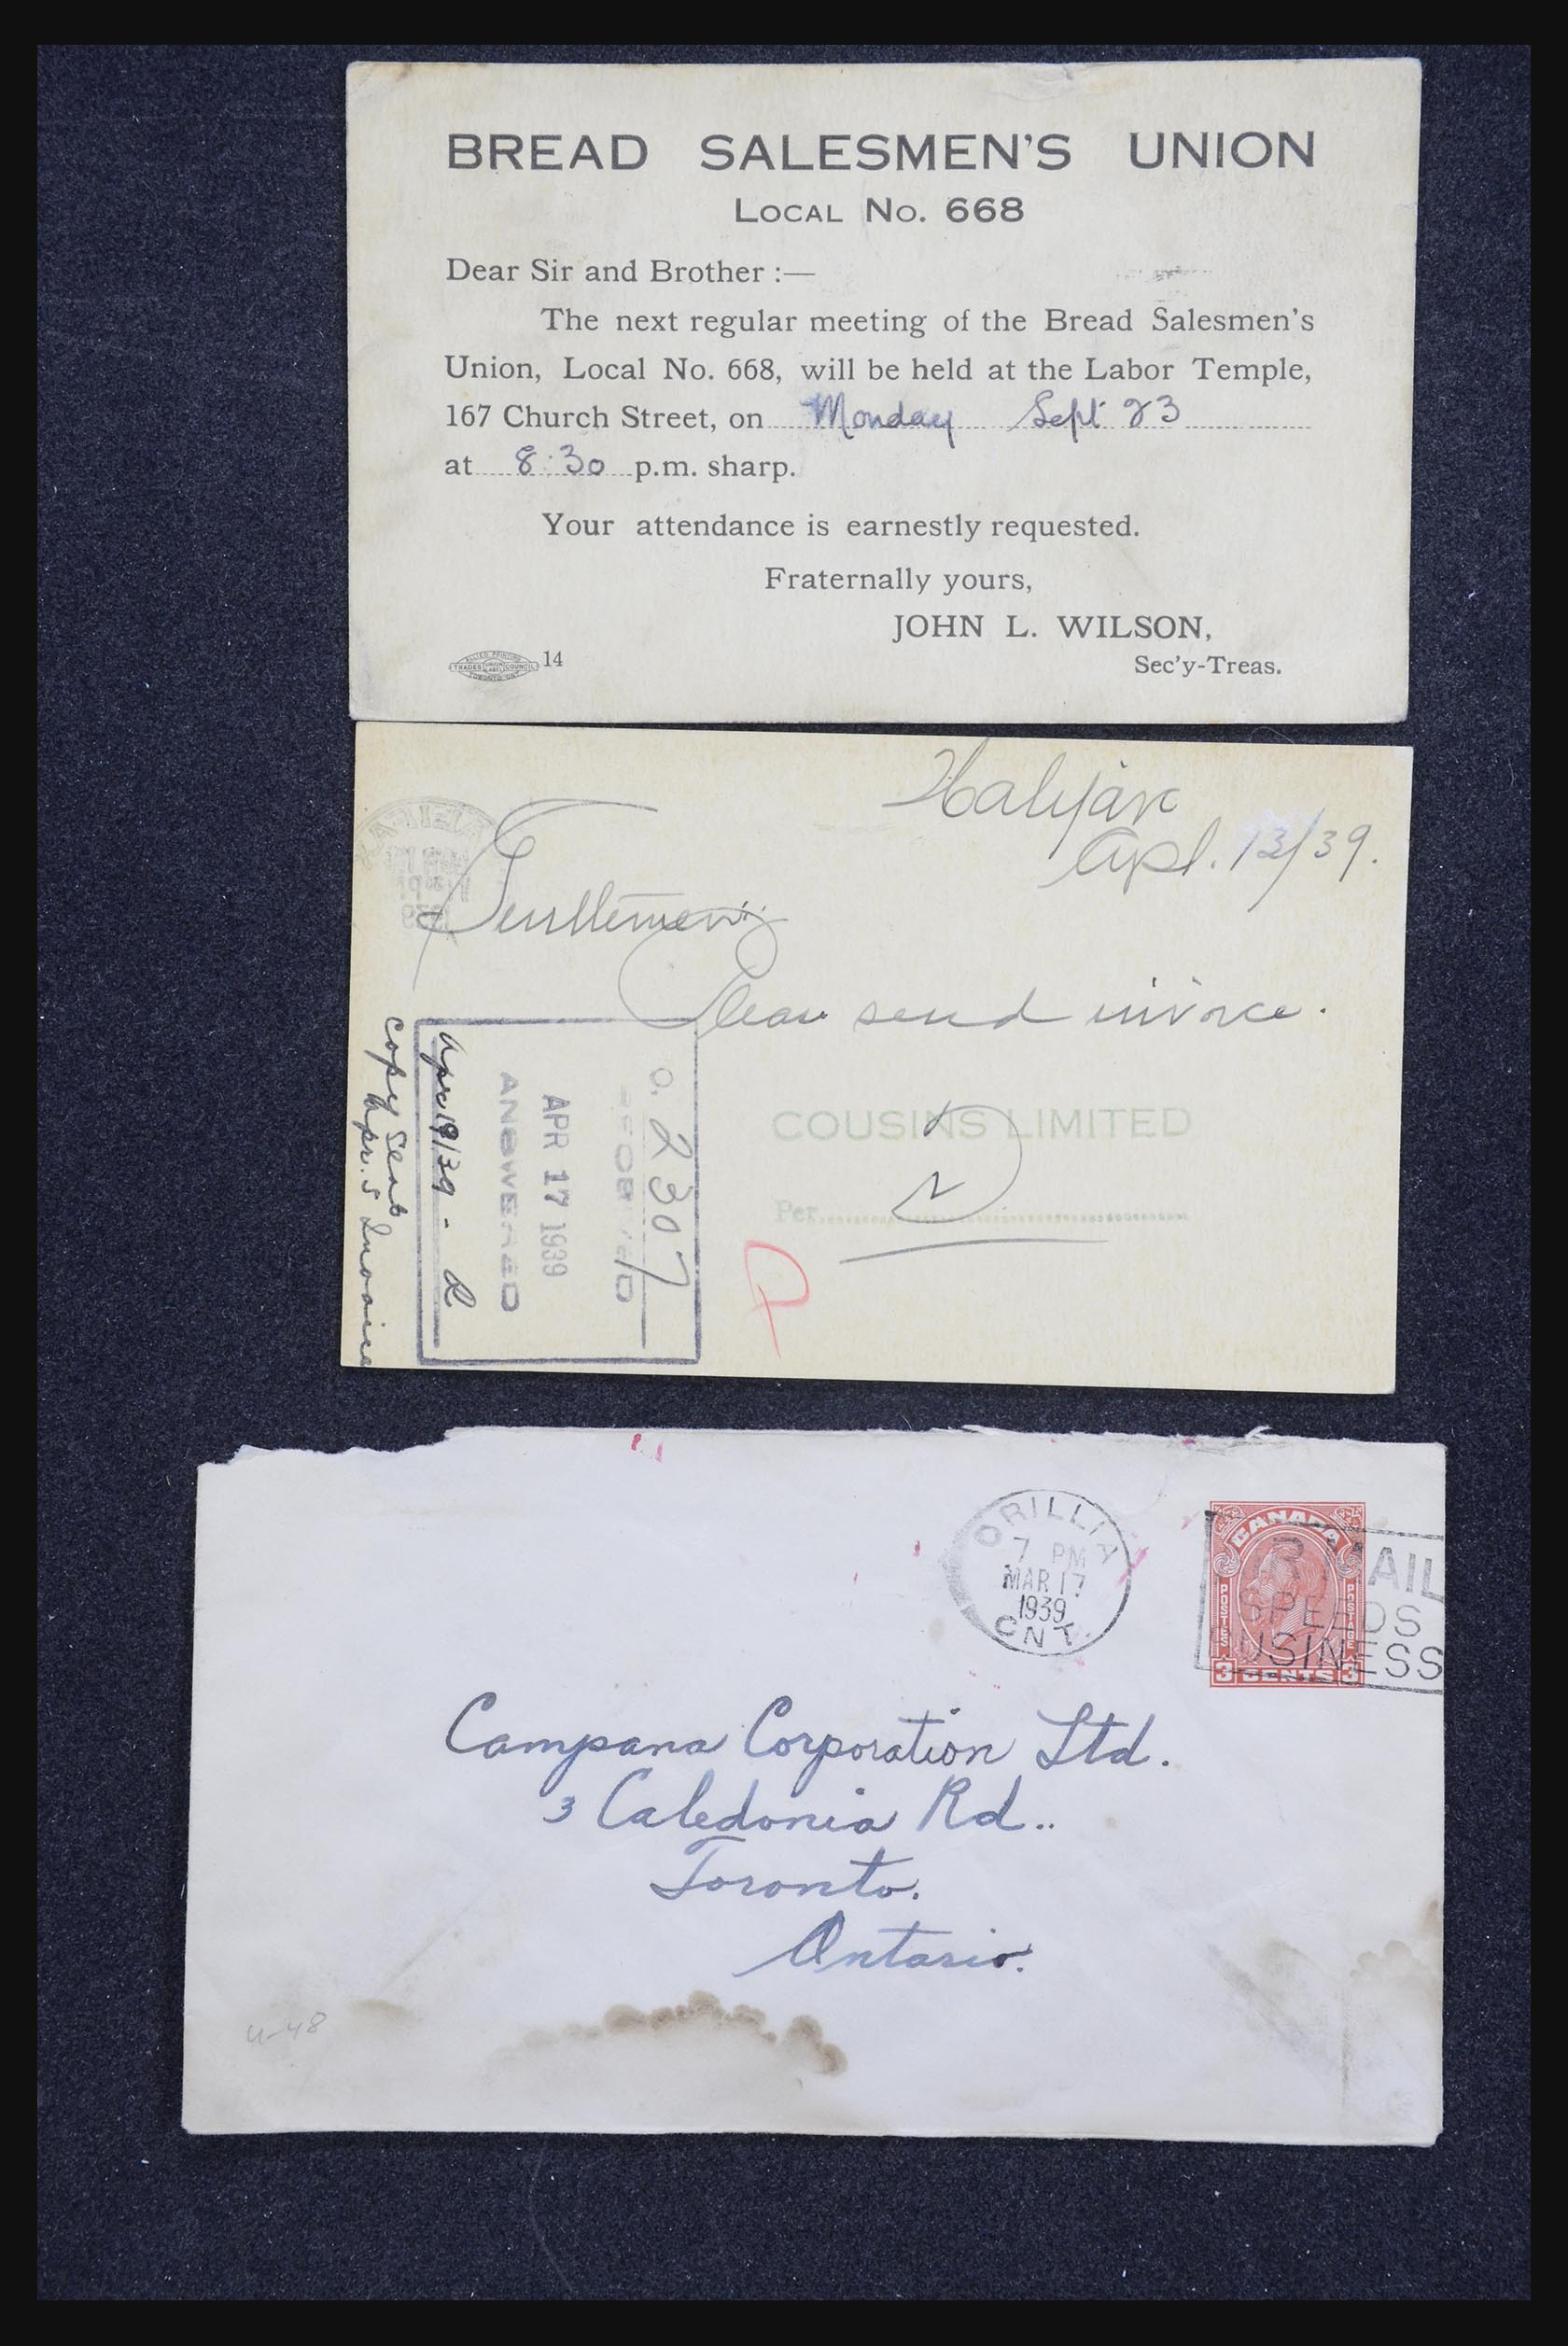 BREAD SALESMEN'S UNION
LOCAL NO. 668
Dear Sir and Brother :—
The next regular meeting of the Bread Salesmen's
Union, Local No. 668, will be held at the Labor Temple,
167 Church Street, on Monday Sept 23
at 8:30 p.m. sharp.
Your attendance is earnestly requested.
Fraternally yours,
JOHN L. WILSON,
Sec'y-Treas.
ALLIED PRINTING
TRADES UNION LABEL COUNCIL
TORONTO ONT
14
Halifax
Apl. 13/39.
Gentlemen:
Please send invoice.
COUSINS LIMITED
Per
2307
APR 17 1939
ANSWERED
Apr 19/39 - R
Copy Sent
Apr. 5 Invoice
ORILLIA
7 PM
MAR 17
1939
ONT.
CANADA
POSTES
POSTAGE
3 CENTS 3
AIL
SPEEDS
USINESS
Campana Corporation Ltd.
3 Caledonia Rd..
Toronto.
Ontario.
U-48